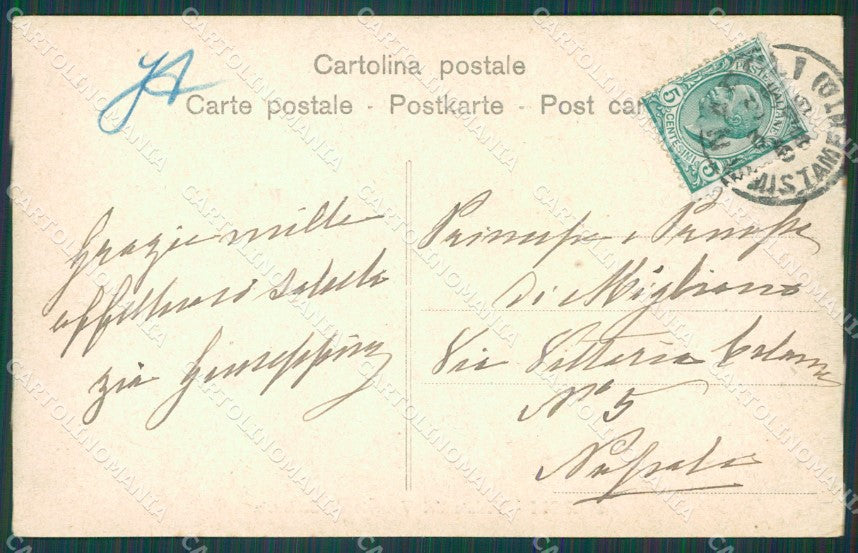 Cartolina postale
Carte postale - Postkarte - Post car
Grazie mille
affettuosi saluti
zia Giuseppina
Principe e
di Migliano
Via Vittoria Colonna
No 5
Napoli
5 CENTESIMI 5
MISTAME
CARTOLINOMANIA